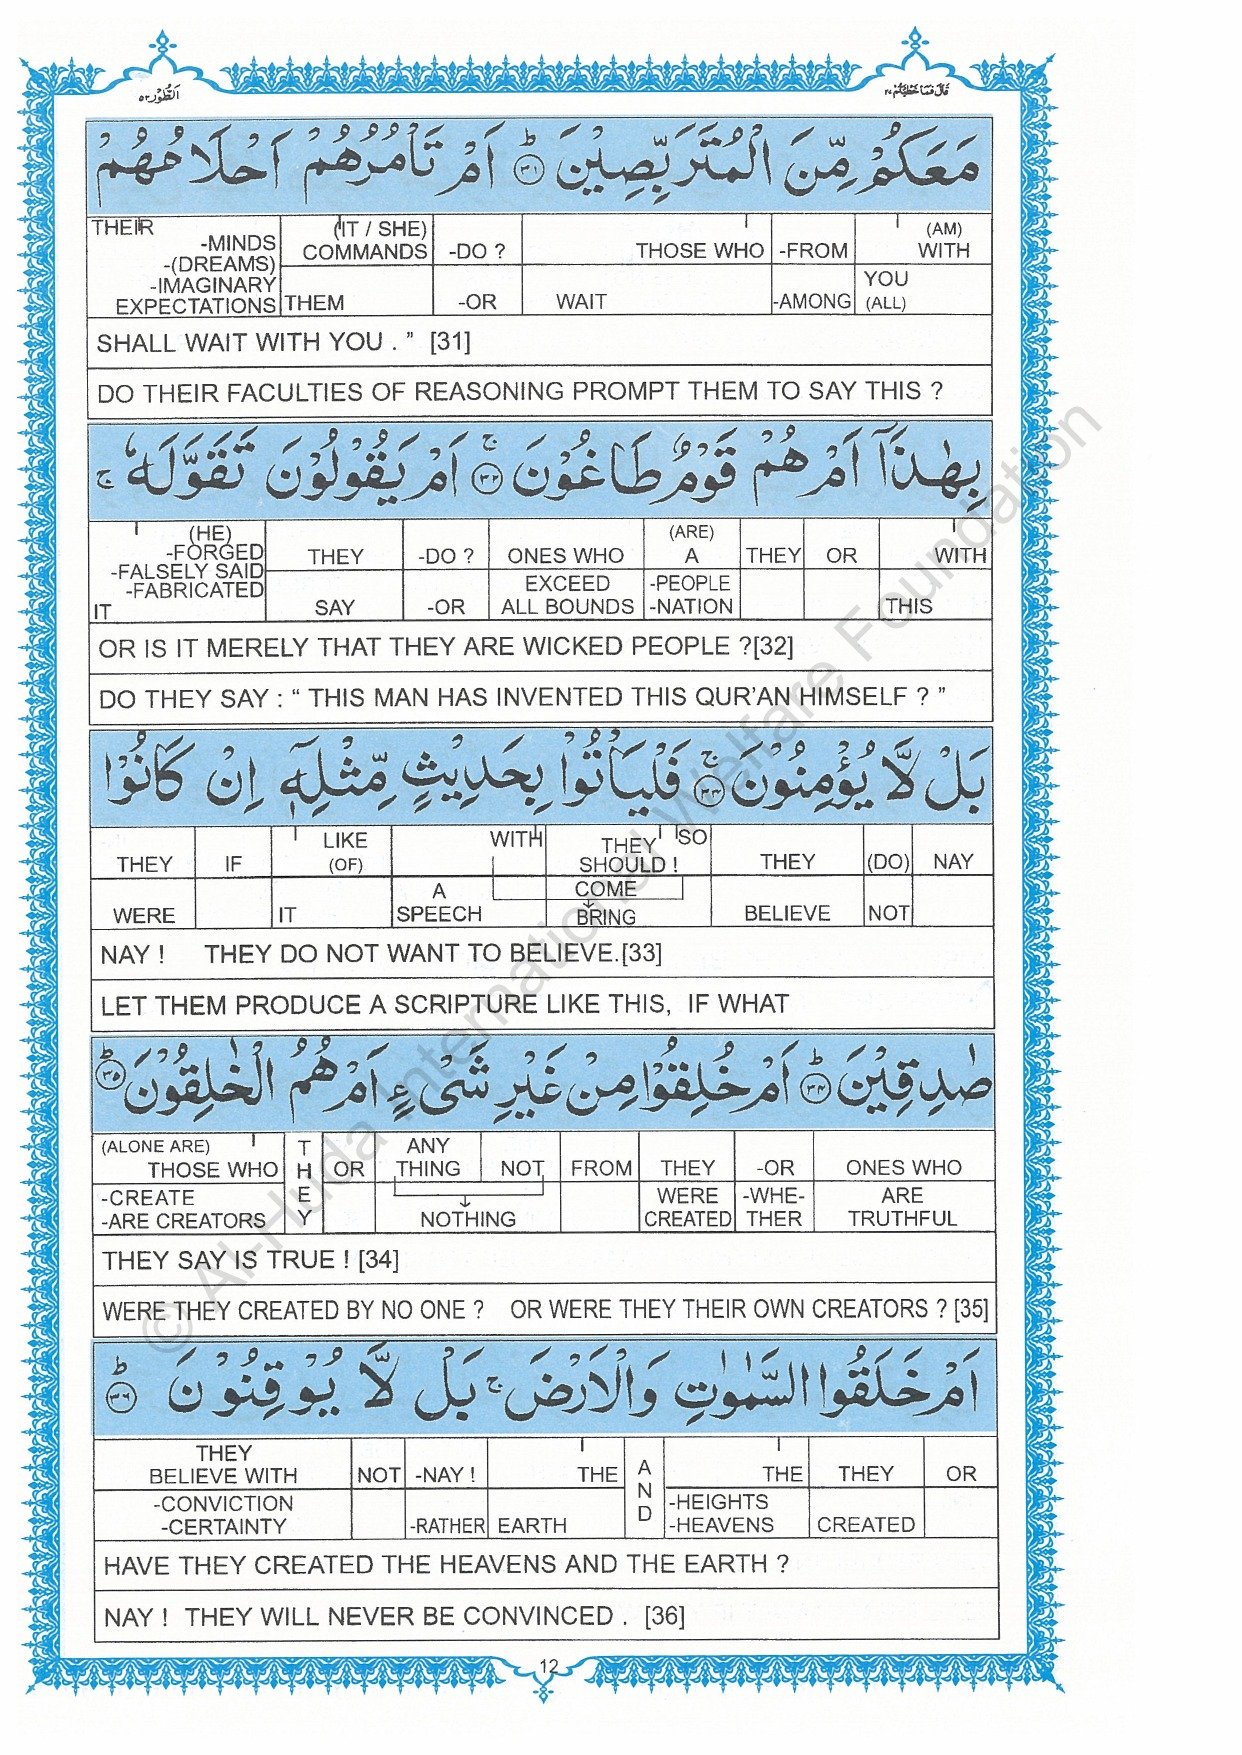 قَالَ فَمَا خَطْبُكُمْ ٢٧
اَلطُّوْر ٥٢
مَعَكُمْ مِّنَ الْمُتَرَبِّصِيْنَ ؕ ﴿٣١﴾ اَمْ تَاْمُرُهُمْ اَحْلَامُهُمْ
THEIR -MINDS -(DREAMS) -IMAGINARY EXPECTATIONS
(IT / SHE) COMMANDS THEM
-DO ? -OR
THOSE WHO WAIT
-FROM -AMONG
(AM) WITH YOU (ALL)
SHALL WAIT WITH YOU . ” [31]
DO THEIR FACULTIES OF REASONING PROMPT THEM TO SAY THIS ?
بِهٰذَآ اَمْ هُمْ قَوْمٌ طَاغُوْنَ ۚ ﴿٣٢﴾ اَمْ يَقُوْلُوْنَ تَقَوَّلَهٗ ۚ
(HE) -FORGED -FALSELY SAID -FABRICATED IT
THEY SAY
-DO ? -OR
ONES WHO EXCEED ALL BOUNDS
(ARE) A -PEOPLE -NATION
THEY
OR
WITH THIS
OR IS IT MERELY THAT THEY ARE WICKED PEOPLE ?[32]
DO THEY SAY : “ THIS MAN HAS INVENTED THIS QUR’AN HIMSELF ? ”
بَلْ لَّا يُؤْمِنُوْنَ ۚ ﴿٣٣﴾ فَلْيَاْتُوْا بِحَدِيْثٍ مِّثْلِهٖٓ اِنْ كَانُوْا
THEY WERE
IF
LIKE (OF) IT
WITH A SPEECH
THEY SHOULD ! SO COME BRING
THEY BELIEVE
(DO) NOT
NAY
NAY ! THEY DO NOT WANT TO BELIEVE.[33]
LET THEM PRODUCE A SCRIPTURE LIKE THIS, IF WHAT
صٰدِقِيْنَ ؕ ﴿٣٤﴾ اَمْ خُلِقُوْا مِنْ غَيْرِ شَيْءٍ اَمْ هُمُ الْخٰلِقُوْنَ ؕ ﴿٣٥﴾
(ALONE ARE) THOSE WHO -CREATE -ARE CREATORS
THEY
OR
ANY THING NOT NOTHING
FROM
THEY WERE CREATED
-OR -WHE-THER
ONES WHO ARE TRUTHFUL
THEY SAY IS TRUE ! [34]
WERE THEY CREATED BY NO ONE ? OR WERE THEY THEIR OWN CREATORS ? [35]
اَمْ خَلَقُوا السَّمٰوٰتِ وَالْاَرْضَ ۚ بَلْ لَّا يُوْقِنُوْنَ ؕ ﴿٣٦﴾
THEY BELIEVE WITH -CONVICTION -CERTAINTY
NOT
-NAY ! -RATHER
THE EARTH
AND
THE -HEIGHTS -HEAVENS
THEY CREATED
OR
HAVE THEY CREATED THE HEAVENS AND THE EARTH ?
NAY ! THEY WILL NEVER BE CONVINCED . [36]
12
© Al-Huda International Welfare Foundation